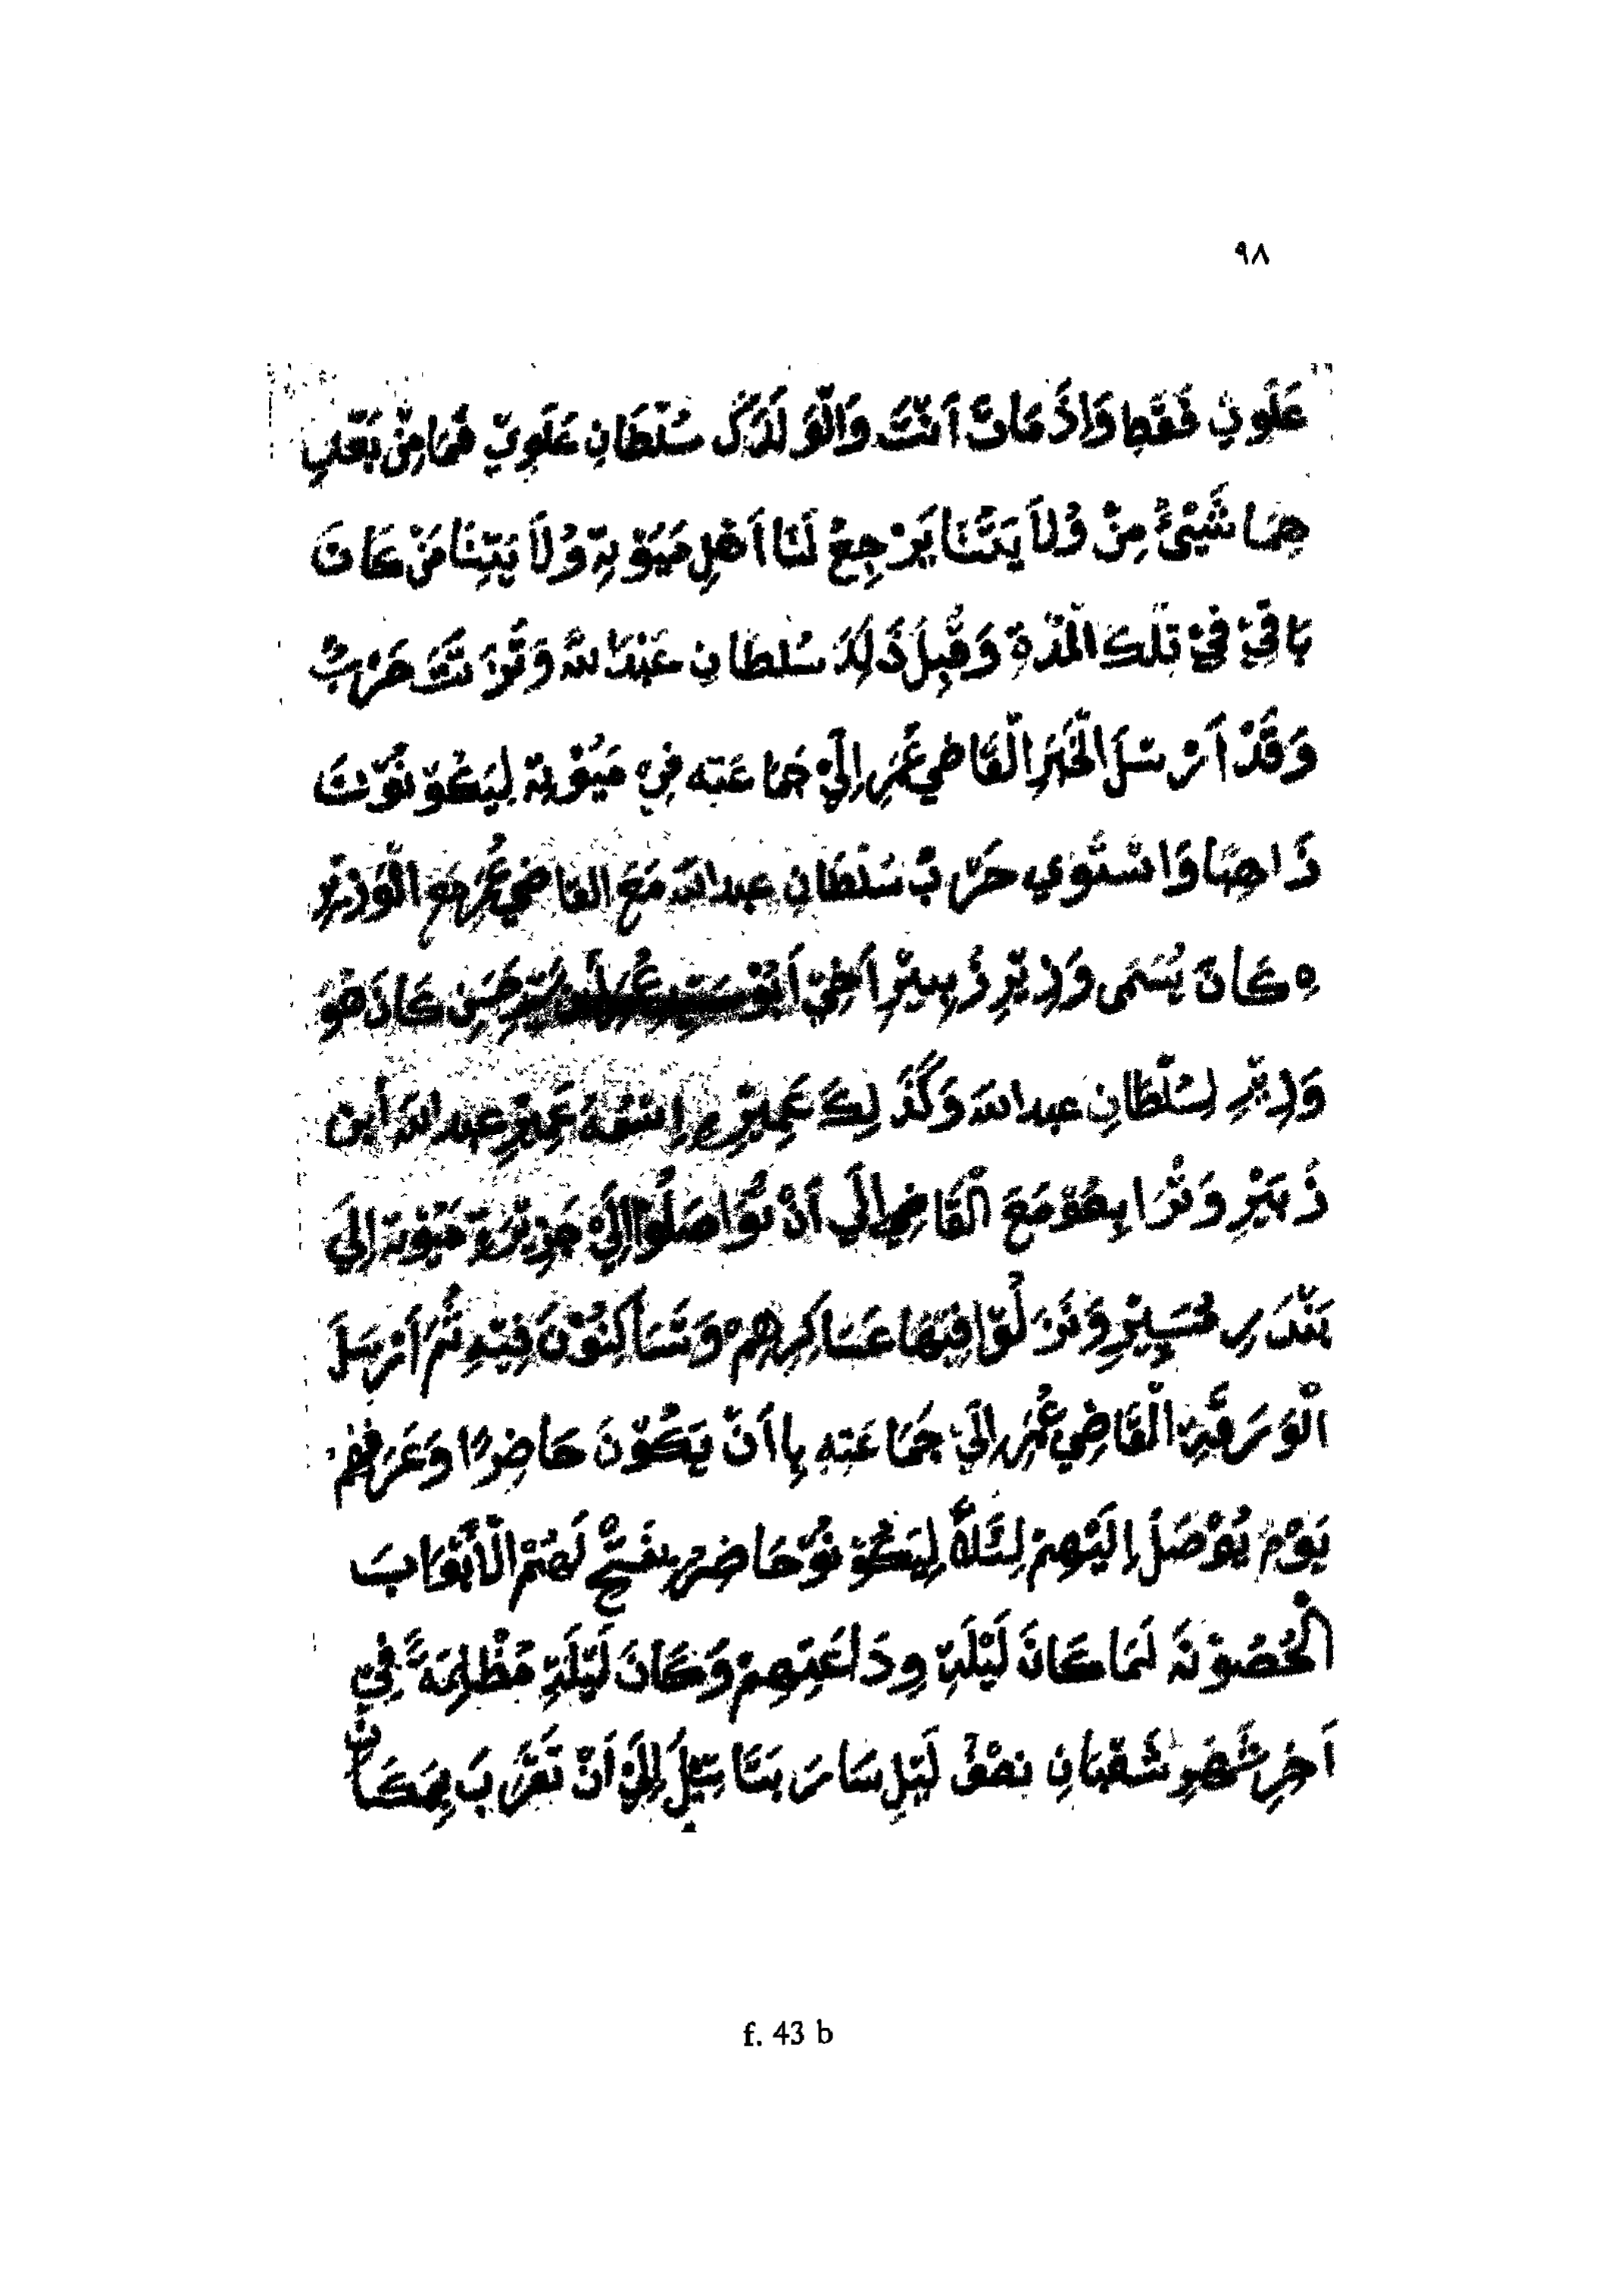 ٩٨
عَلَوِيْ فَقَطِ وَاِذَ مَاتَ اَنْتَ وَالْوَلَدَكَ سُلْطَانِ عَلَوِيْ فَمَا مِنْ بَعْدِ
هِمَا شَيْئُ مِنْ وُلَا يَتَنَا يَرْجِعْ لَنَا اَهْلِ مَيَوْتِةْ وُلَا يَتِنَا مَنْ كَانَ
بَاقِيْ فِيْ تِلْكَ الْمُدَّةِ وَقَبِلَ ذَلِكَ سُلطَانِ عَبْدَاللهُ وَتَرَتَّبَ حَرْبُ
وَقَدْ اَرْسَلَ الْخَبَرَ الْقَاضِي عُمَرِ اِلَيْ جَمَاعَتِه فِيْ مَيُوْتِةْ لِيَكُوْنُوْنَ
ذَاهِبًا وَاسْتَوِي حَرْبُ سُلْطَانِ عبدالله مَعَ القاضِي عُمَرِ مَعَ الْوَزِيْرِ
هِ كَانَ يُسَمَى وَزِيْرِ زُبِيْرْ اَخِيْ اَبُوْ كَانَ هُوَ
وَزِيْرِ لِسُلْطَانِ عبدالله وَكَذَلِكَ عَمِيْرِ اِسْمُهُ عَمِيْرِ عبدالله اَبن
زُبَيْرِ وَتْرَا بِهُوْ مَعَ الْقَاضِ اِلَي اَنْ تَوَاصَلُوْا اِلَيْ جَزِيْرَةِ مَيُوْتَة اِلَيَ
بَنْدَرِ مُسَيْرِ وَنَزَلُوْا فِيْهَا عَسَاكِرِهِمْ وَتَسَاكَنُوْنَ فِيْهِ ثُمَ اَرْسَلَ
الْوَرَقَةِ الْقَاضِي عُمَرِ اِلَيْ جَمَاعَتِهِ بِا اَنْ يَكُوْنَ حَاضِرًا وَعَرَفَهُمْ
يَوْمُ يُوْصَلُ اِلَيْهِمْ لِئَلَهُ لِيَكُوْنُوْ حَاضِرُ بِفَتْحِ لَهُمْ الْاَبْوَابَ
الْحُصُوْنَهَ لَمَا كَانَ لَيْلَةِ وِدَاعَتِهِمْ وَكَانَ لَيْلَةِ مُظْلِمَةً فِيْ
اَخِرِ شَهْرِ شَعْبَانِ نِصْفُ لَيْلِ سَارَ بَنَا سِيْلَ اِلَيْ اَنْ تَقَرَّبَ بِمَكَانْ
f. 43 b